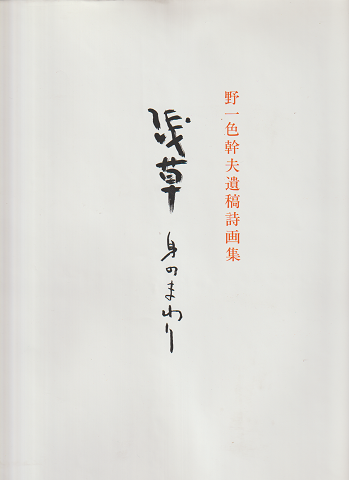 野一色幹夫遺稿詩画集
浅草
身のまわり